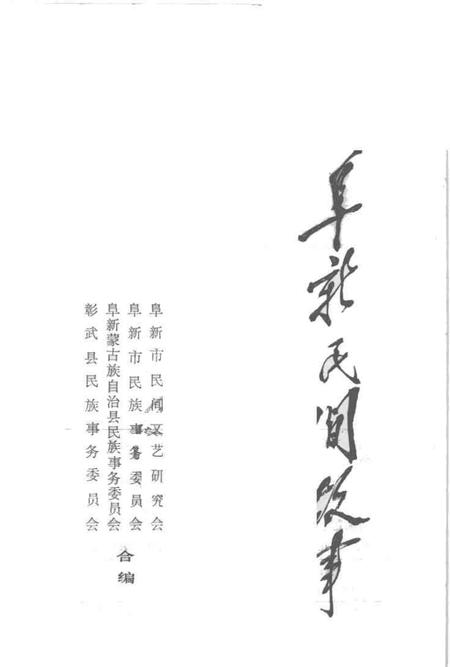 阜新民间故事
阜新市民间文艺研究会
阜新市民族事务委员会
阜新蒙古族自治县民族事务委员会
彰武县民族事务委员会
合编